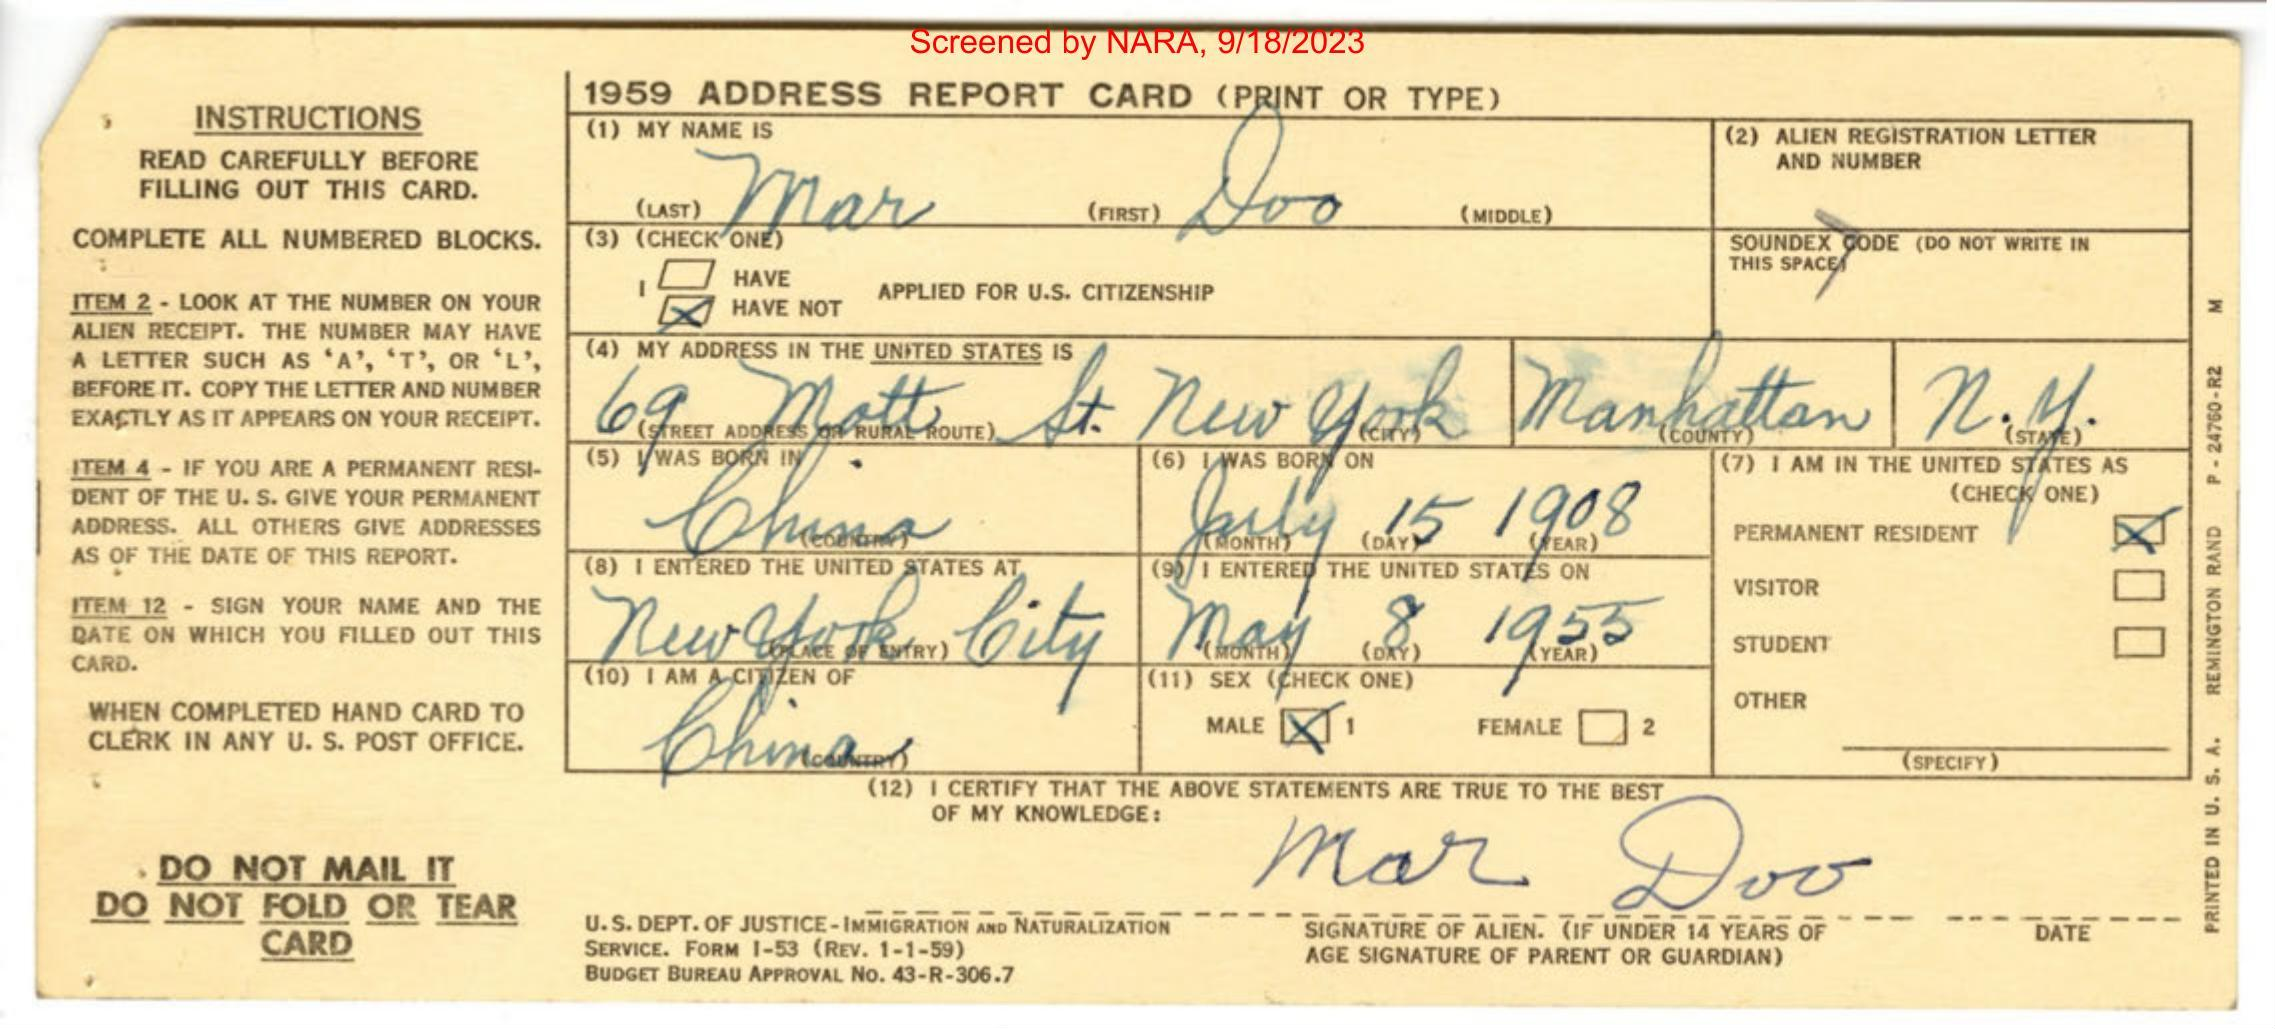 Screened by NARA, 9/18/2023
INSTRUCTIONS
READ CAREFULLY BEFORE
FILLING OUT THIS CARD.
COMPLETE ALL NUMBERED BLOCKS.
ITEM 2 - LOOK AT THE NUMBER ON YOUR
ALIEN RECEIPT. THE NUMBER MAY HAVE
A LETTER SUCH AS ‘A’, ‘T’, OR ‘L’,
BEFORE IT. COPY THE LETTER AND NUMBER
EXACTLY AS IT APPEARS ON YOUR RECEIPT.
ITEM 4 - IF YOU ARE A PERMANENT RESI-
DENT OF THE U. S. GIVE YOUR PERMANENT
ADDRESS. ALL OTHERS GIVE ADDRESSES
AS OF THE DATE OF THIS REPORT.
ITEM 12 - SIGN YOUR NAME AND THE
DATE ON WHICH YOU FILLED OUT THIS
CARD.
WHEN COMPLETED HAND CARD TO
CLERK IN ANY U. S. POST OFFICE.
DO NOT MAIL IT
DO NOT FOLD OR TEAR
CARD
1959 ADDRESS REPORT CARD (PRINT OR TYPE)
(1) MY NAME IS
Mar Doo
(LAST) (FIRST) (MIDDLE)
(2) ALIEN REGISTRATION LETTER
AND NUMBER
(3) (CHECK ONE)
I HAVE
X HAVE NOT
APPLIED FOR U.S. CITIZENSHIP
SOUNDEX CODE (DO NOT WRITE IN
THIS SPACE)
(4) MY ADDRESS IN THE UNITED STATES IS
69 Mott St. New York Manhattan N.Y.
(STREET ADDRESS OR RURAL ROUTE) (CITY) (COUNTY) (STATE)
(5) I WAS BORN IN
China
(COUNTRY)
(6) I WAS BORN ON
July 15 1908
(MONTH) (DAY) (YEAR)
(7) I AM IN THE UNITED STATES AS
(CHECK ONE)
PERMANENT RESIDENT X
VISITOR
STUDENT
OTHER
(SPECIFY)
(8) I ENTERED THE UNITED STATES AT
New York City
(PLACE OF ENTRY)
(9) I ENTERED THE UNITED STATES ON
May 8 1955
(MONTH) (DAY) (YEAR)
(10) I AM A CITIZEN OF
China
(COUNTRY)
(11) SEX (CHECK ONE)
MALE X 1 FEMALE 2
(12) I CERTIFY THAT THE ABOVE STATEMENTS ARE TRUE TO THE BEST
OF MY KNOWLEDGE:
Mar Doo
U.S. DEPT. OF JUSTICE-IMMIGRATION AND NATURALIZATION
SERVICE. FORM I-53 (REV. 1-1-59)
BUDGET BUREAU APPROVAL NO. 43-R-306.7
SIGNATURE OF ALIEN. (IF UNDER 14 YEARS OF
AGE SIGNATURE OF PARENT OR GUARDIAN)
DATE
PRINTED IN U. S. A. REMINGTON RAND P - 24760-R2 M